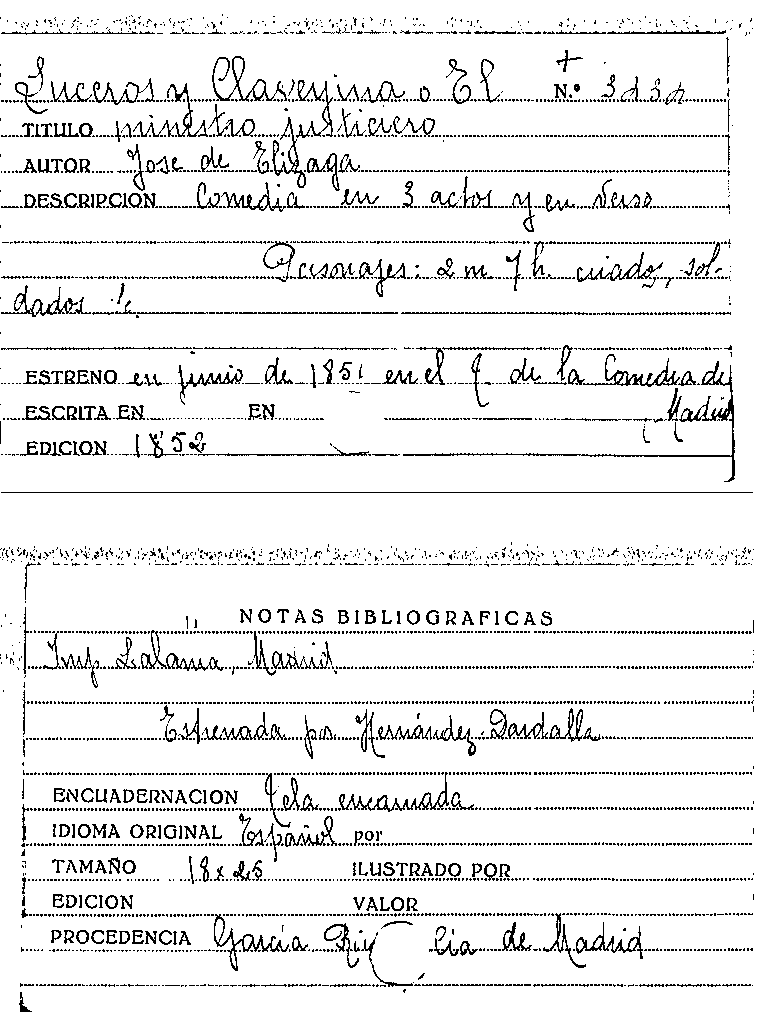 Luceros y Claveyina o El N.º
TITULO ministro justiciero
AUTOR Jose de Elizaga
DESCRIPCION Comedia en 3 actos y en verso
Personajes: 2 m 7 h. criados, sol-
dados
ESTRENO en junio de 1851 en el T. de la Comedia de
ESCRITA EN EN Madrid
EDICION 1852
NOTAS BIBLIOGRAFICAS
Imp Lalama, Madrid
Estrenada por Hernández-Dardalla
ENCUADERNACION Tela encarnada
IDIOMA ORIGINAL Español por
TAMAÑO 18 x 25 ILUSTRADO POR
EDICION VALOR
PROCEDENCIA García de Madrid